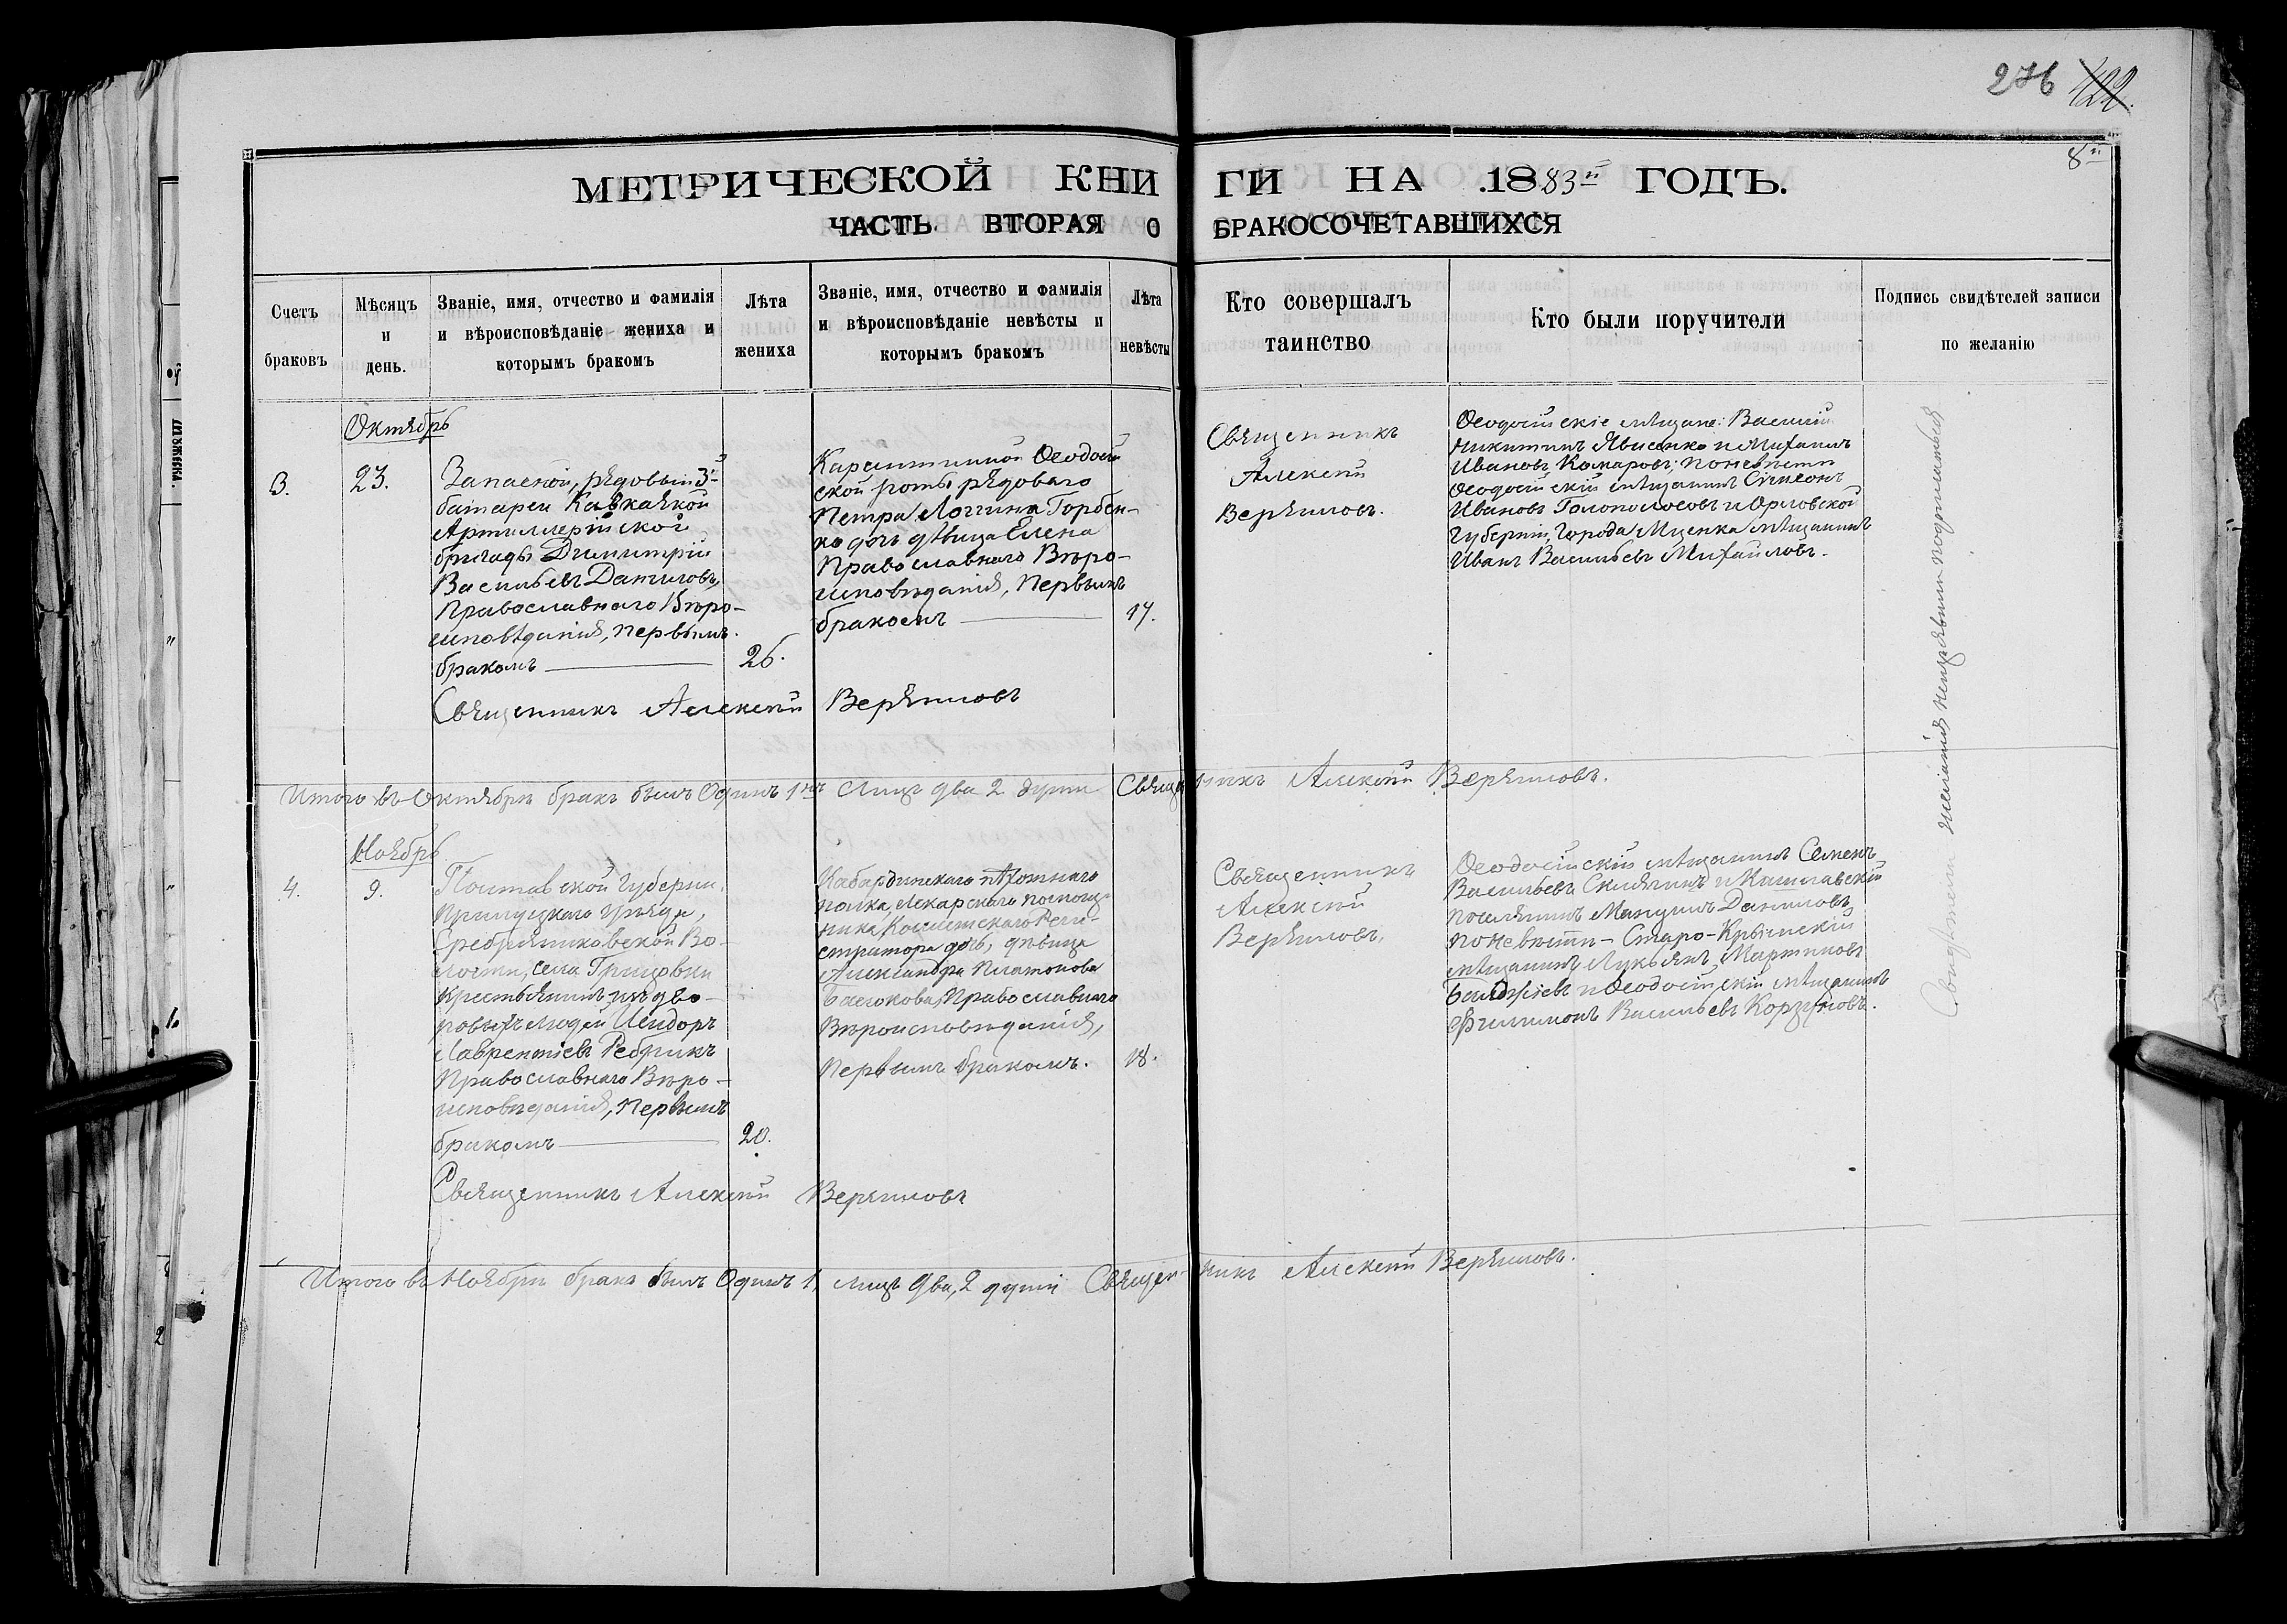 276 422.
8й
МЕТРИЧЕСКОЙ КНИГИ НА 1883й ГОДЪ.
ЧАСТЬ ВТОРАЯ О БРАКОСОЧЕТАВШИХСЯ
Счетъ браковъ
Мѣсяцъ и день.
Званіе, имя, отчество и фамилія
и вѣроисповѣданіе жениха и
которымъ бракомъ
Лѣта
жениха
Званіе, имя, отчество и фамилія
и вѣроисповѣданіе невѣсты и
которымъ бракомъ
Лѣта
невѣсты
Кто совершалъ
таинство
Кто были поручители
Подпись свидѣтелей записи
по желанію
Октябрь
3.
23.
Запасной, рядовый 3й
батареи Кавказкой
Артиллерійской
бригады Димитрій
Васильевъ Даниловъ,
Православнаго Вѣро-
исповѣданія, первымъ
бракомъ
26.
Карантинной Ѳеодосій
ской роты рядоваго
Петра Логгина Горбен-
ко дочь дѣвица Елена
Православнаго Вѣро-
исповѣданія, Первымъ
бракомъ
17.
Священникъ
Алексій
Веряиловъ.
Ѳеодосійскіе мѣщане: Василій
Никитинъ Явисенко и Михаилъ
Ивановъ Комаровъ; по невѣсти
Ѳеодосійскій мѣщанинъ Сімеонъ
Ивановъ Голополосовъ и Орловской
Губерніи, Города Мценка мѣщанинъ
Иванъ Васильевъ Михайловъ.
Священникъ Алексій Веряиловъ
Итого въ Октябрѣ бракъ былъ Одинъ 1нъ Лицъ два 2 души Священникъ Алексій Веряиловъ.
Ноябрь
4.
9.
Полтавской Губерніи,
Прилуцкаго Уѣзда,
Сребрянниковской Во-
лости, села Грицовки
Крестьянинъ изъ дво-
ровыхъ людей Исидоръ
Лаврентіевъ Ребрикъ
Православнаго Вѣро-
исповѣданія, Первымъ
бракомъ
20.
Кабардинскаго пѣхотнаго
полка, Лекарскаго помощ-
ника, Коллежскаго Реги-
стратора дочь, дѣвица
Александра Платонова
Православнаго
Вѣроисповѣданія,
Первымъ бракомъ.
18.
Священникъ
Алексій
Веряиловъ.
Ѳеодосійскій мѣщанинъ Семенъ
Васильевъ
поселянинъ Мануилъ Даниловъ,
по невѣсти - Старо-Крымскій
мѣщанинъ Лукьянъ Мартиновъ
и Ѳеодосійскій мѣщанинъ
Филимонъ Васильевъ Корзуновъ.
Священникъ Алексій Веряиловъ
Итого въ Ноябрѣ бракъ былъ Одинъ 1, лицъ Два, 2 души Священникъ Алексій Веряиловъ.